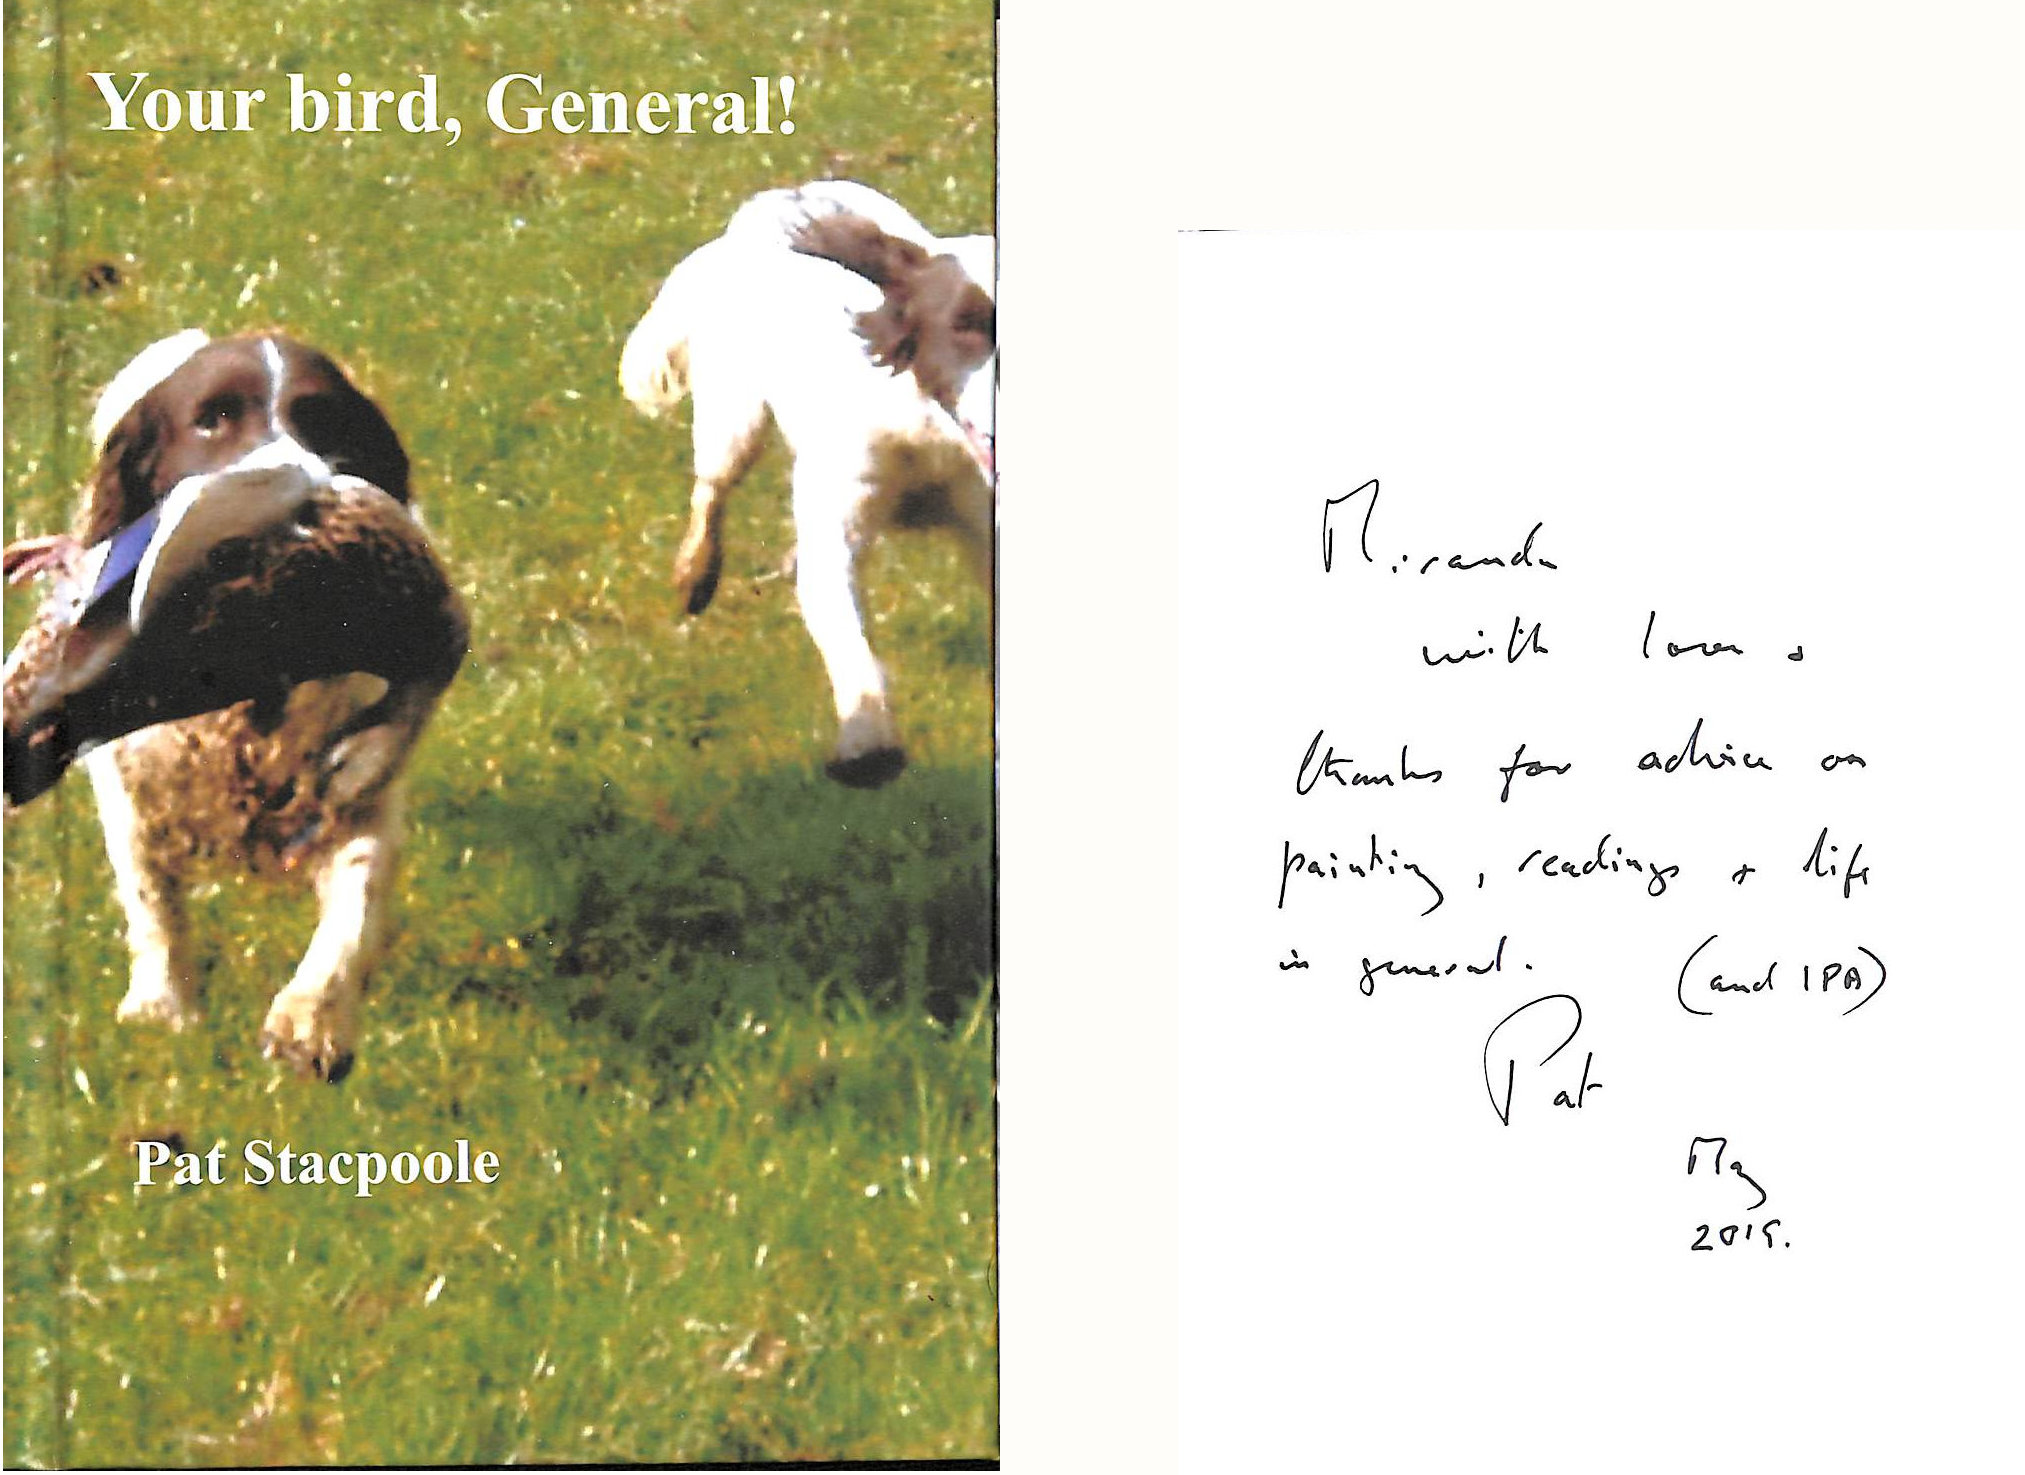 Your bird, General!
Pat Stacpoole
Miranda
with love +
thanks for advice on
painting, readings + life
in general. (and IPA)
Pat
May
2019.